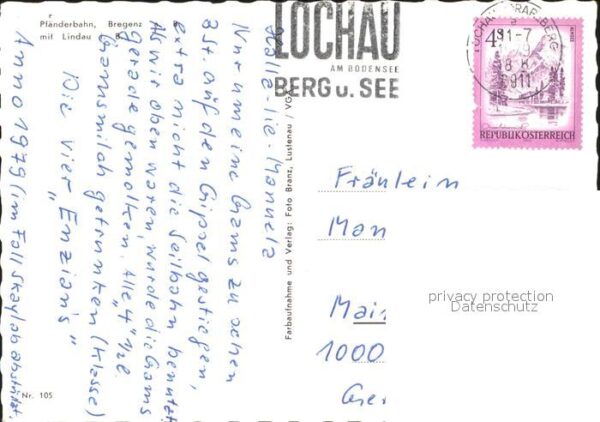 Pfänderbahn, Bregenz
mit Lindau
LOCHAU
AM BODENSEE
BERG u. SEE
LOCHAU VORARLBERG
6911
4 S
REPUBLIK ÖSTERREICH
Hallie-lie-Manuela
Nur um eine Gams zu sehen
3 St. auf den Gipfel gestiegen,
extra nicht die Seilbahn benutzt.
Als wir oben waren, wurde die Gams
gerade gemolken. Alle 4
Gamsmilch getrunken (Klasse)
Die vier "Enzian's"
Anno 1979 (im Fall Skylab abstürzt.
Nr. 105
Farbaufnahme und Verlag: Foto Branz, Lustenau / VGA
Fräulein
Man
Main
1000
Ger
privacy protection
Datenschutz